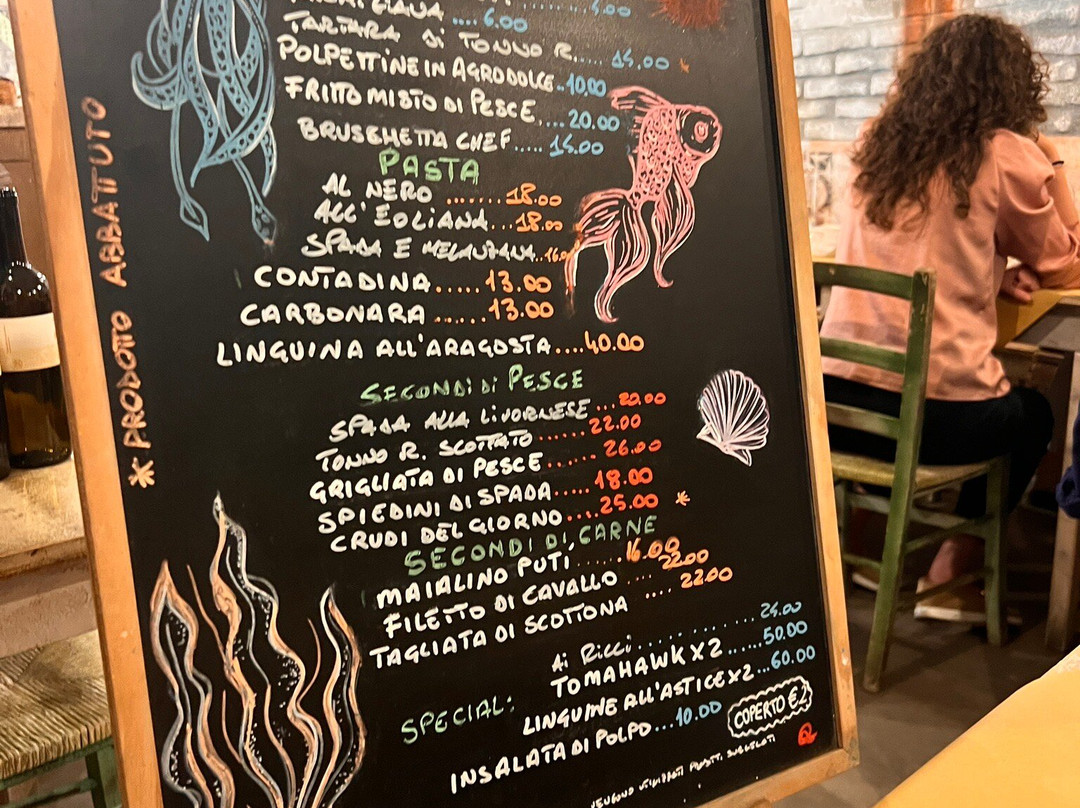 6.00
TARTARA DI TONNO R..... 15.00 *
POLPETTINE IN AGRODOLCE..10.00
FRITTO MISTO DI PESCE....20.00
BRUSCHETTA CHEF..... 15.00
PASTA
AL NERO .......18.00
ALL'EOLIANA...18.00
SPADA E MELANZANA..16.0
CONTADINA......13.00
CARBONARA......13.00
LINGUINA ALL'ARAGOSTA....40.00
SECONDI DI PESCE
SPADA ALLA LIVORNESE...20.00
TONNO R. SCOTTATO......22.00
GRIGLIATA DI PESCE......26.00
SPIEDINI DI SPADA.....18.00
CRUDI DEL GIORNO....25.00 *
SECONDI DI CARNE
MAIALINO PUTÍ......16.00
FILETTO DI CAVALLO ....22.00
TAGLIATA DI SCOTTONA ....22.00
SPECIAL:
Ai Ricci............25.00
TOMAHAWK X2......50.00
LINGUINE ALL'ASTICE X2...60.00
INSALATA DI POLPO...10.00
COPERTO €2
VENGONO
* PRODOTTO ABBATTUTO